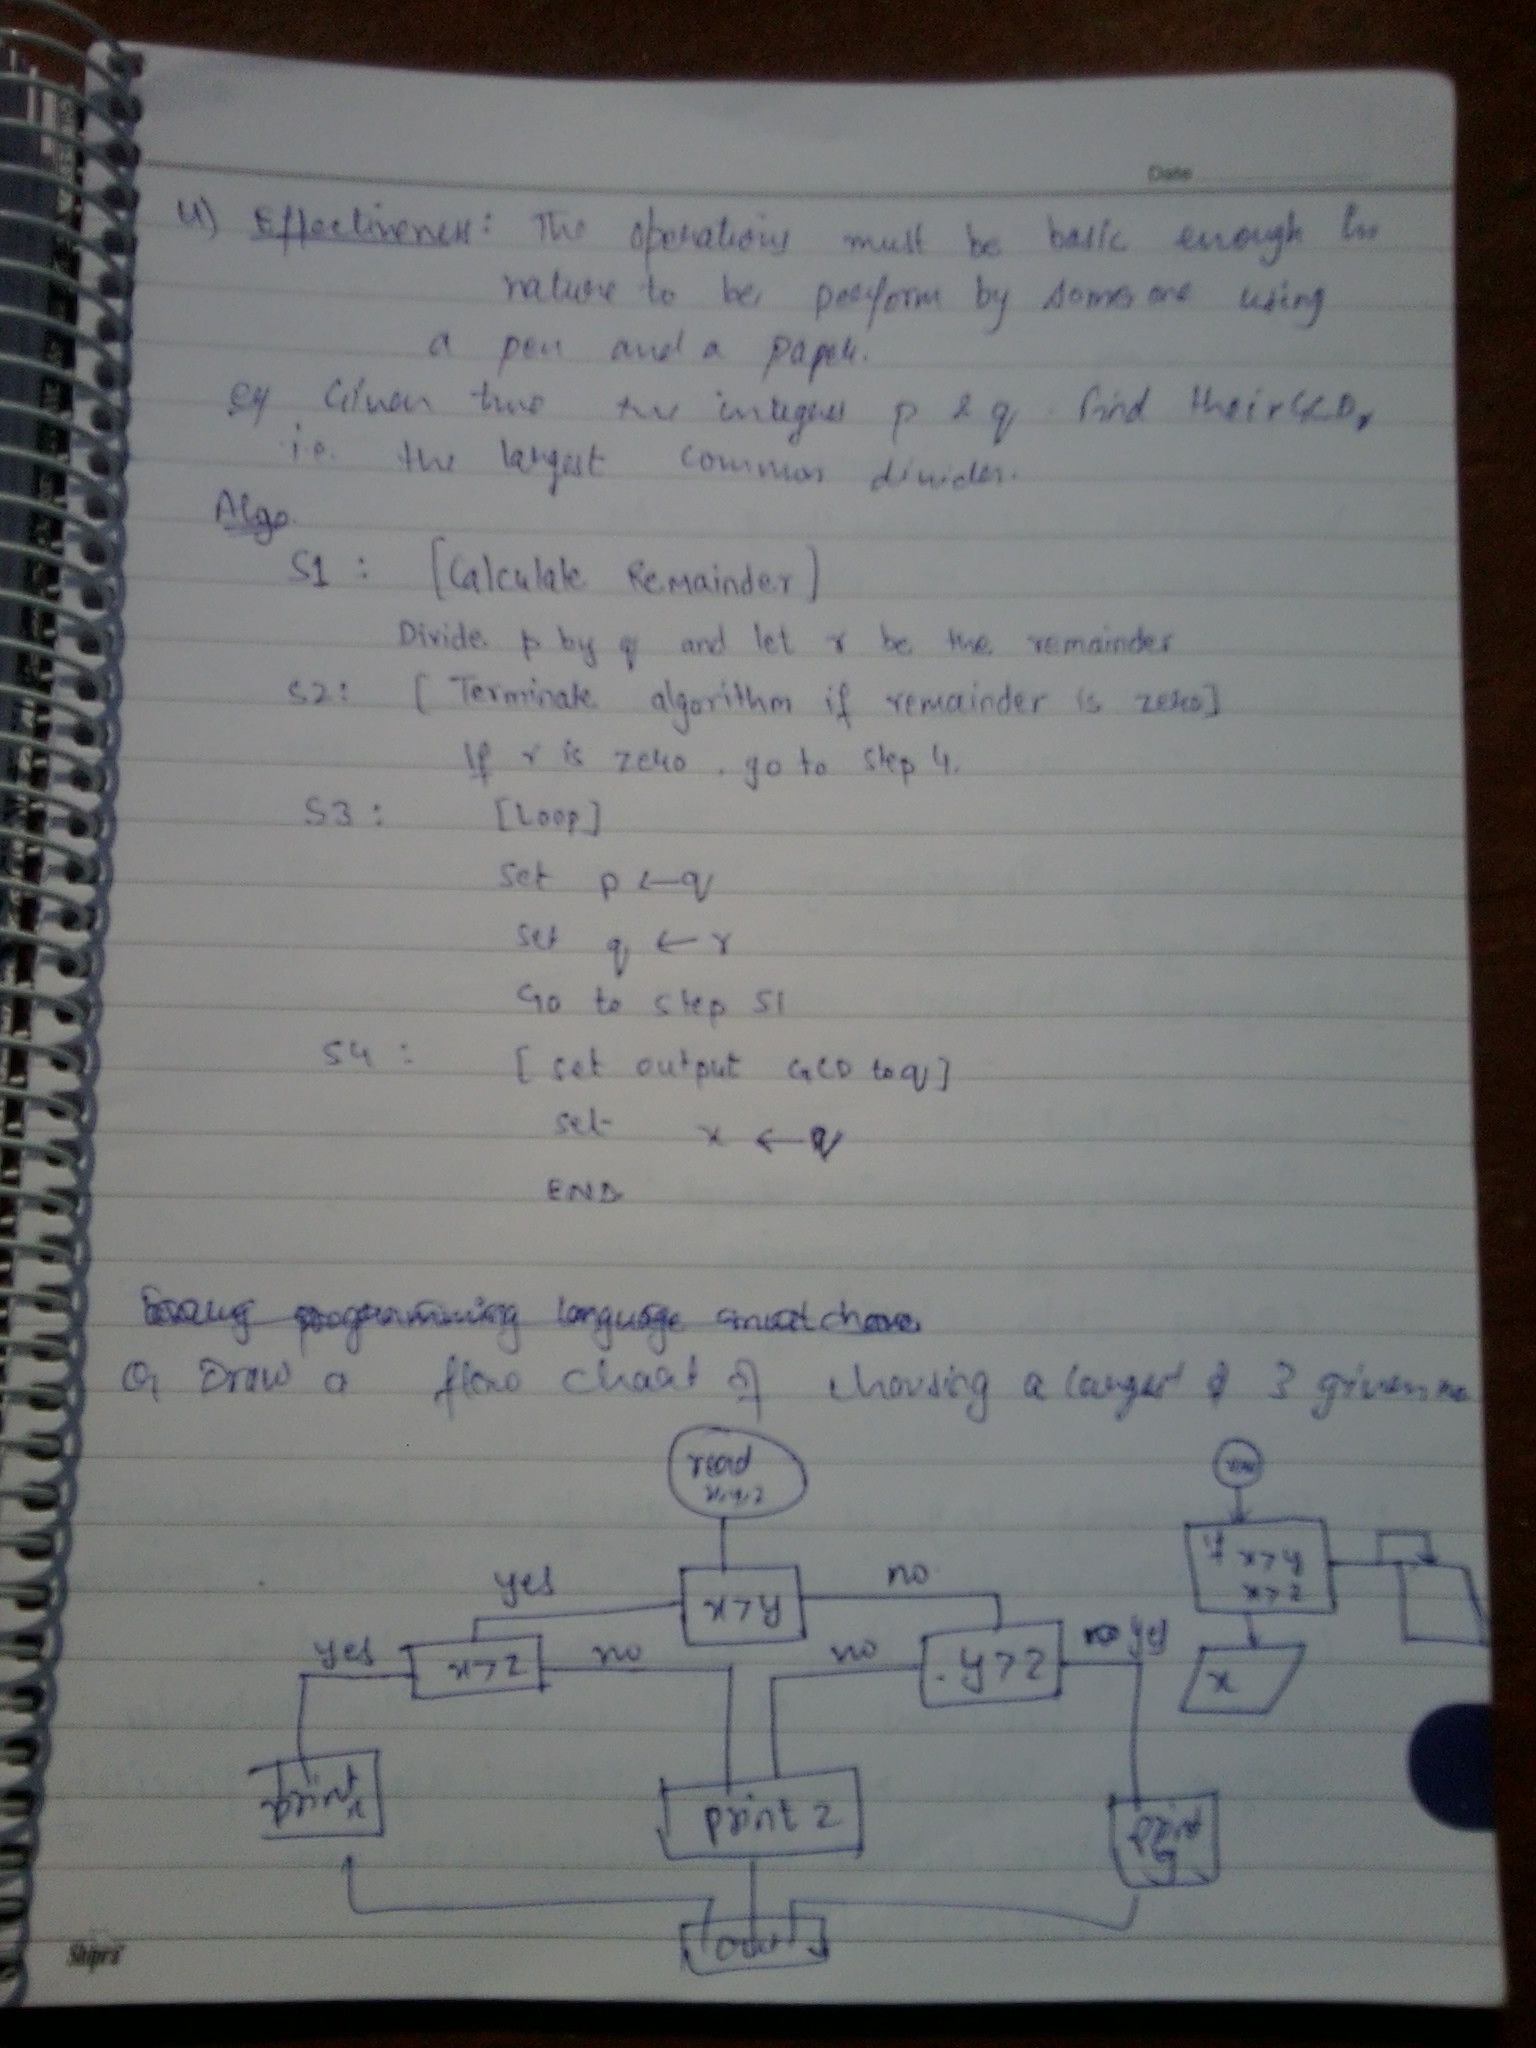 Date
4) Effectiveness: The operations must be basic enough in
nature to be perform by someone using
a pen and a paper.
eg Given two +ve integers p & q find their GCD,
i.e. the largest common divider.
Algo
S1 : [Calculate Remainder]
Divide p by q and let r be the remainder
S2: [Terminate algorithm if remainder is zero]
If r is zero, go to step 4.
S3 : [Loop]
set p ← q
set q ← r
Go to step S1
S4 : [set output GCD to q]
set x ← q
END
programming language must
Q Draw a flow chart of choosing a largest of 3 given no
read
x,y,z
if x>y
x>z
x
yes x>y no
yes x>z no
no y>z yes
print x
print z
print y
out
Shipra